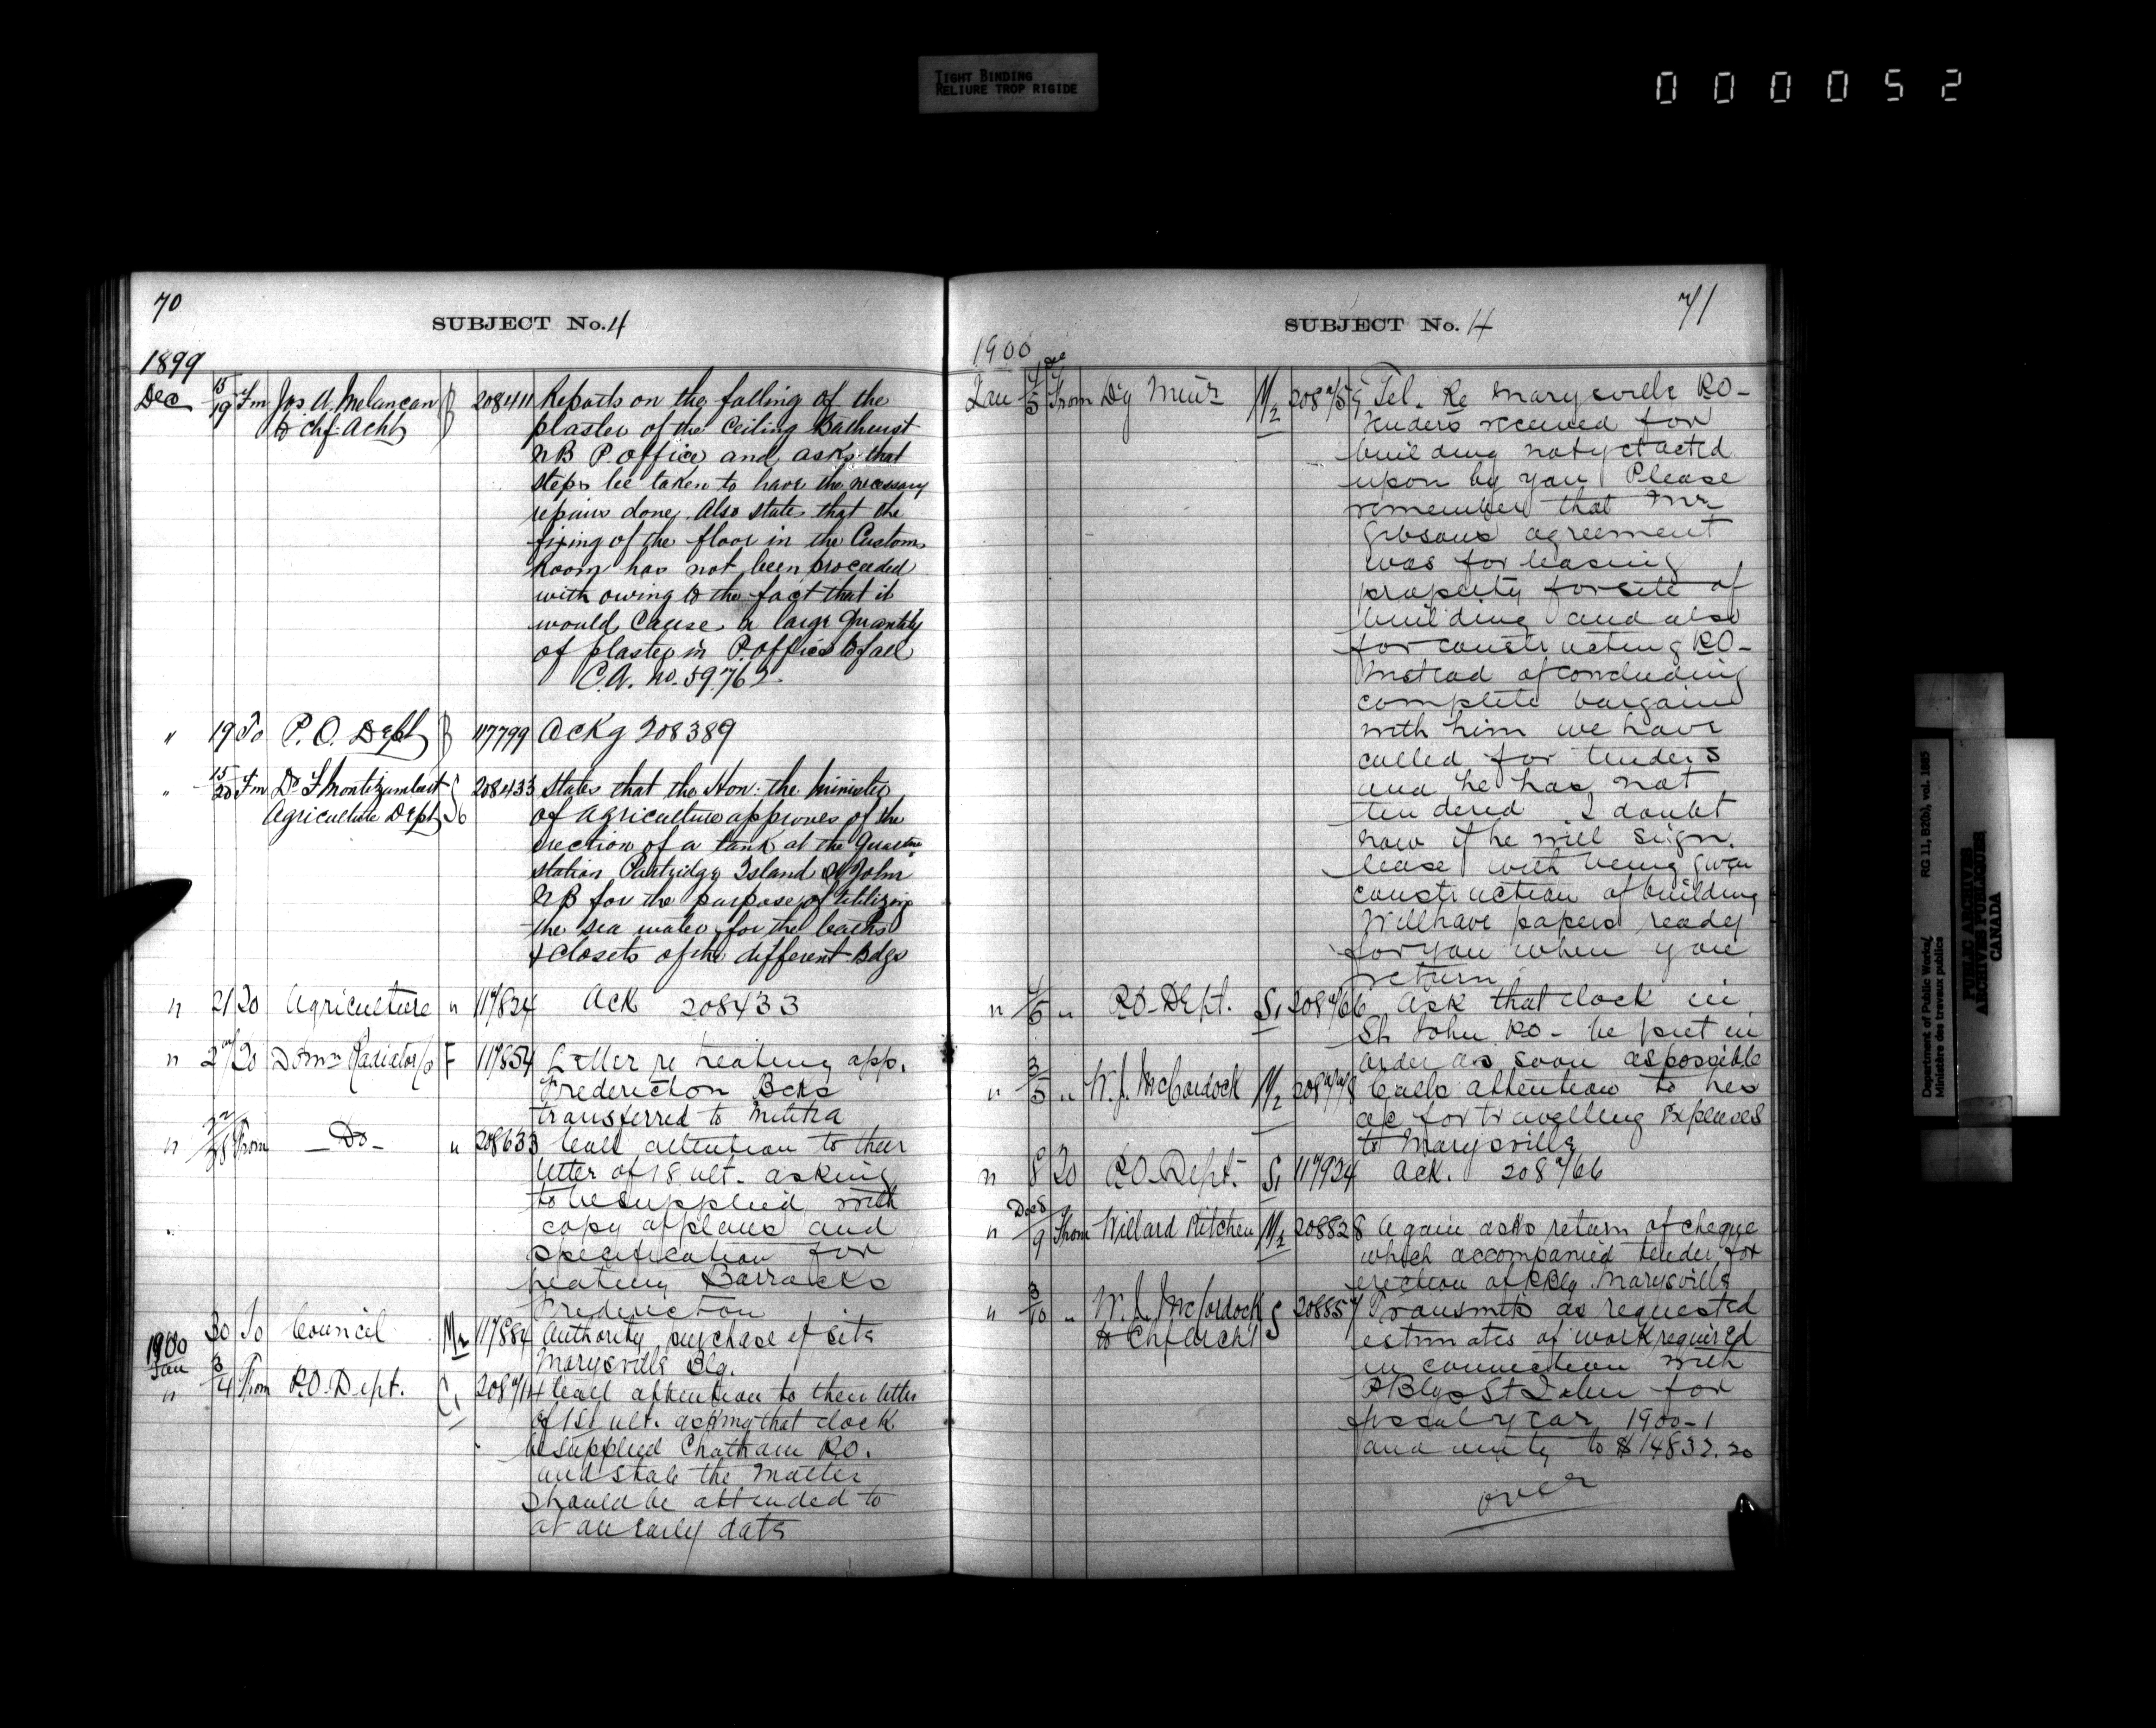 TIGHT BINDING
RELIURE TROP RIGIDE
000052
70
SUBJECT No. 4
1899
Dec 15/19 Fm Jos. A. Melancan B 208411 Reports on the falling of the
to Chf. Acht plaster of the Ceiling Bathurst
NB P. office and asks that
steps be taken to have the necessary
repairs done. Also states that the
fixing of the floor in the Customs
Room has not been proceeded
with owing to the fact that it
would Cause a large Quantity
of plaster in P. office to fall
C.A. no. 59762.
" 19 To P.O. Dept B 117799 Ackg 208389
" 15/20 Fm Dr F Montizambert 208433 States that the Hon. the Minister
Agriculture Dept of Agriculture approves of the
erection of a tank at the Quartne
station Partridge Island St John
NB for the purpose of utilizing
the sea water for the baths
& Closets of the different Bdgs
" 21 To Agriculture " 117824 Ack 208433
" To Domn Radiator Co F 117854 Letter re heating app.
Fredericton Bcks
transferred to Militia
" From - Do - " 208633 Call attention to their
letter of 18 ult. asking
to be supplied with
copy of plans and
specification for
heating Barracks
Fredericton
30 To Council M2 117884 Authority purchase of site
Marysville Blg.
1900
Jan
" 3/4 From P.O. Dept. C1 208714 Call attention to their letter
of 1st ult. asking that clock
be supplied Chatham P.O.
and state the matter
should be attended to
at an early date
71
SUBJECT No. 4
1900
Jan From Dy Meur M2 Tel. Re Marysville P.O-
Tenders received for
building not yet acted
upon by you Please
remember that Mr
Gibsons agreement
was for leasing
property for site of
building and also
for constructing P.O-
Instead of concluding
complete bargain
with him we have
called for tenders
and he has not
tendered I doubt
now if he will sign
lease with being given
construction of building
Will have papers ready
for you when you
return
" 4/5 " P.O-Dept. S1 208766 Ask that clock in
St John P.O- be put in
order as soon as possible
" 3/5 " W. J. McCordock M2 Calls attention to his
a/c for travelling expenses
to Marysville
" 8 To P.O-Dept. S1 117924 Ack. 208766
" Dec 8/9 From Willard Kitchen M2 208828 Again asks return of cheque
which accompanied tender for
erection of P Blg. Marysville
" 3/10 " W. J. McCordock S 208857 Transmits as requested
to Chf Archt estimates of work required
in connection with
P Blgs St John for
fiscal year 1900-1
and amtg to $14832.20
over
Department of Public Works/ RG 11, B2(b), vol. 1885
Ministère des travaux publics
PUBLIC ARCHIVES
ARCHIVES PUBLIQUES
CANADA